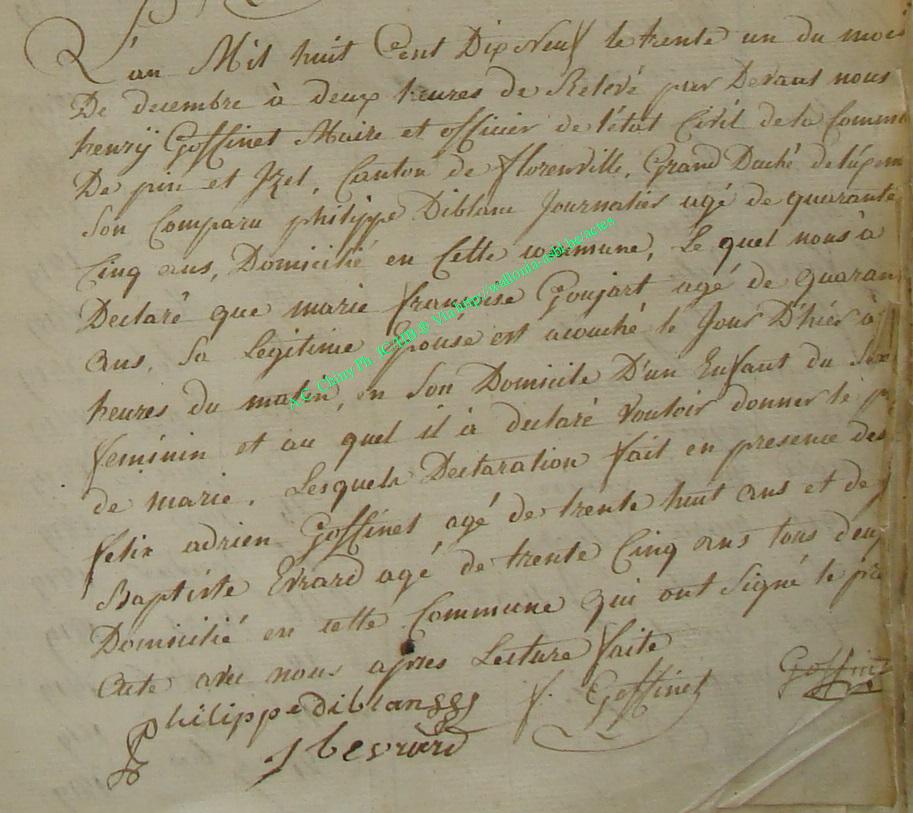 L'an Mil huit Cent Dix Neuf le trente un du mois
De decembre à deux heures de Relevé par Devant nous
henrÿ Goffinet Maire et officier de l'état Civil de la Commu
De pin et Izel, Canton de florenville, Grand Duché de
Son Comparu philippe Diblanc Journalier agé de quarante
Cinq ans, Domicilié en Cette commune, Le quel nous à
Declaré que marie françoise Goujart agé de quaran
ans, Sa Legitime Epouse est acouché le Jour D'hier à
heures du matin, en Son Domicile D'un Enfant du Sexe
feminin et au quel il à declaré vouloir donner le pr
de marie. Lesquels Declaration fait en presence des
felix adrien Goffinet agé de trente huit ans et de J
Baptiste Evrard agé de trente Cinq ans tous deux
Domicilié en cette Commune qui ont Signé le pré
acte avec nous apres Lecture faite
philippe diblanc f. Goffinet Goffinet
J b evrard
A.E. Chiny Ph. JCAUB@ Via http://wallonia-asbl.be/actes